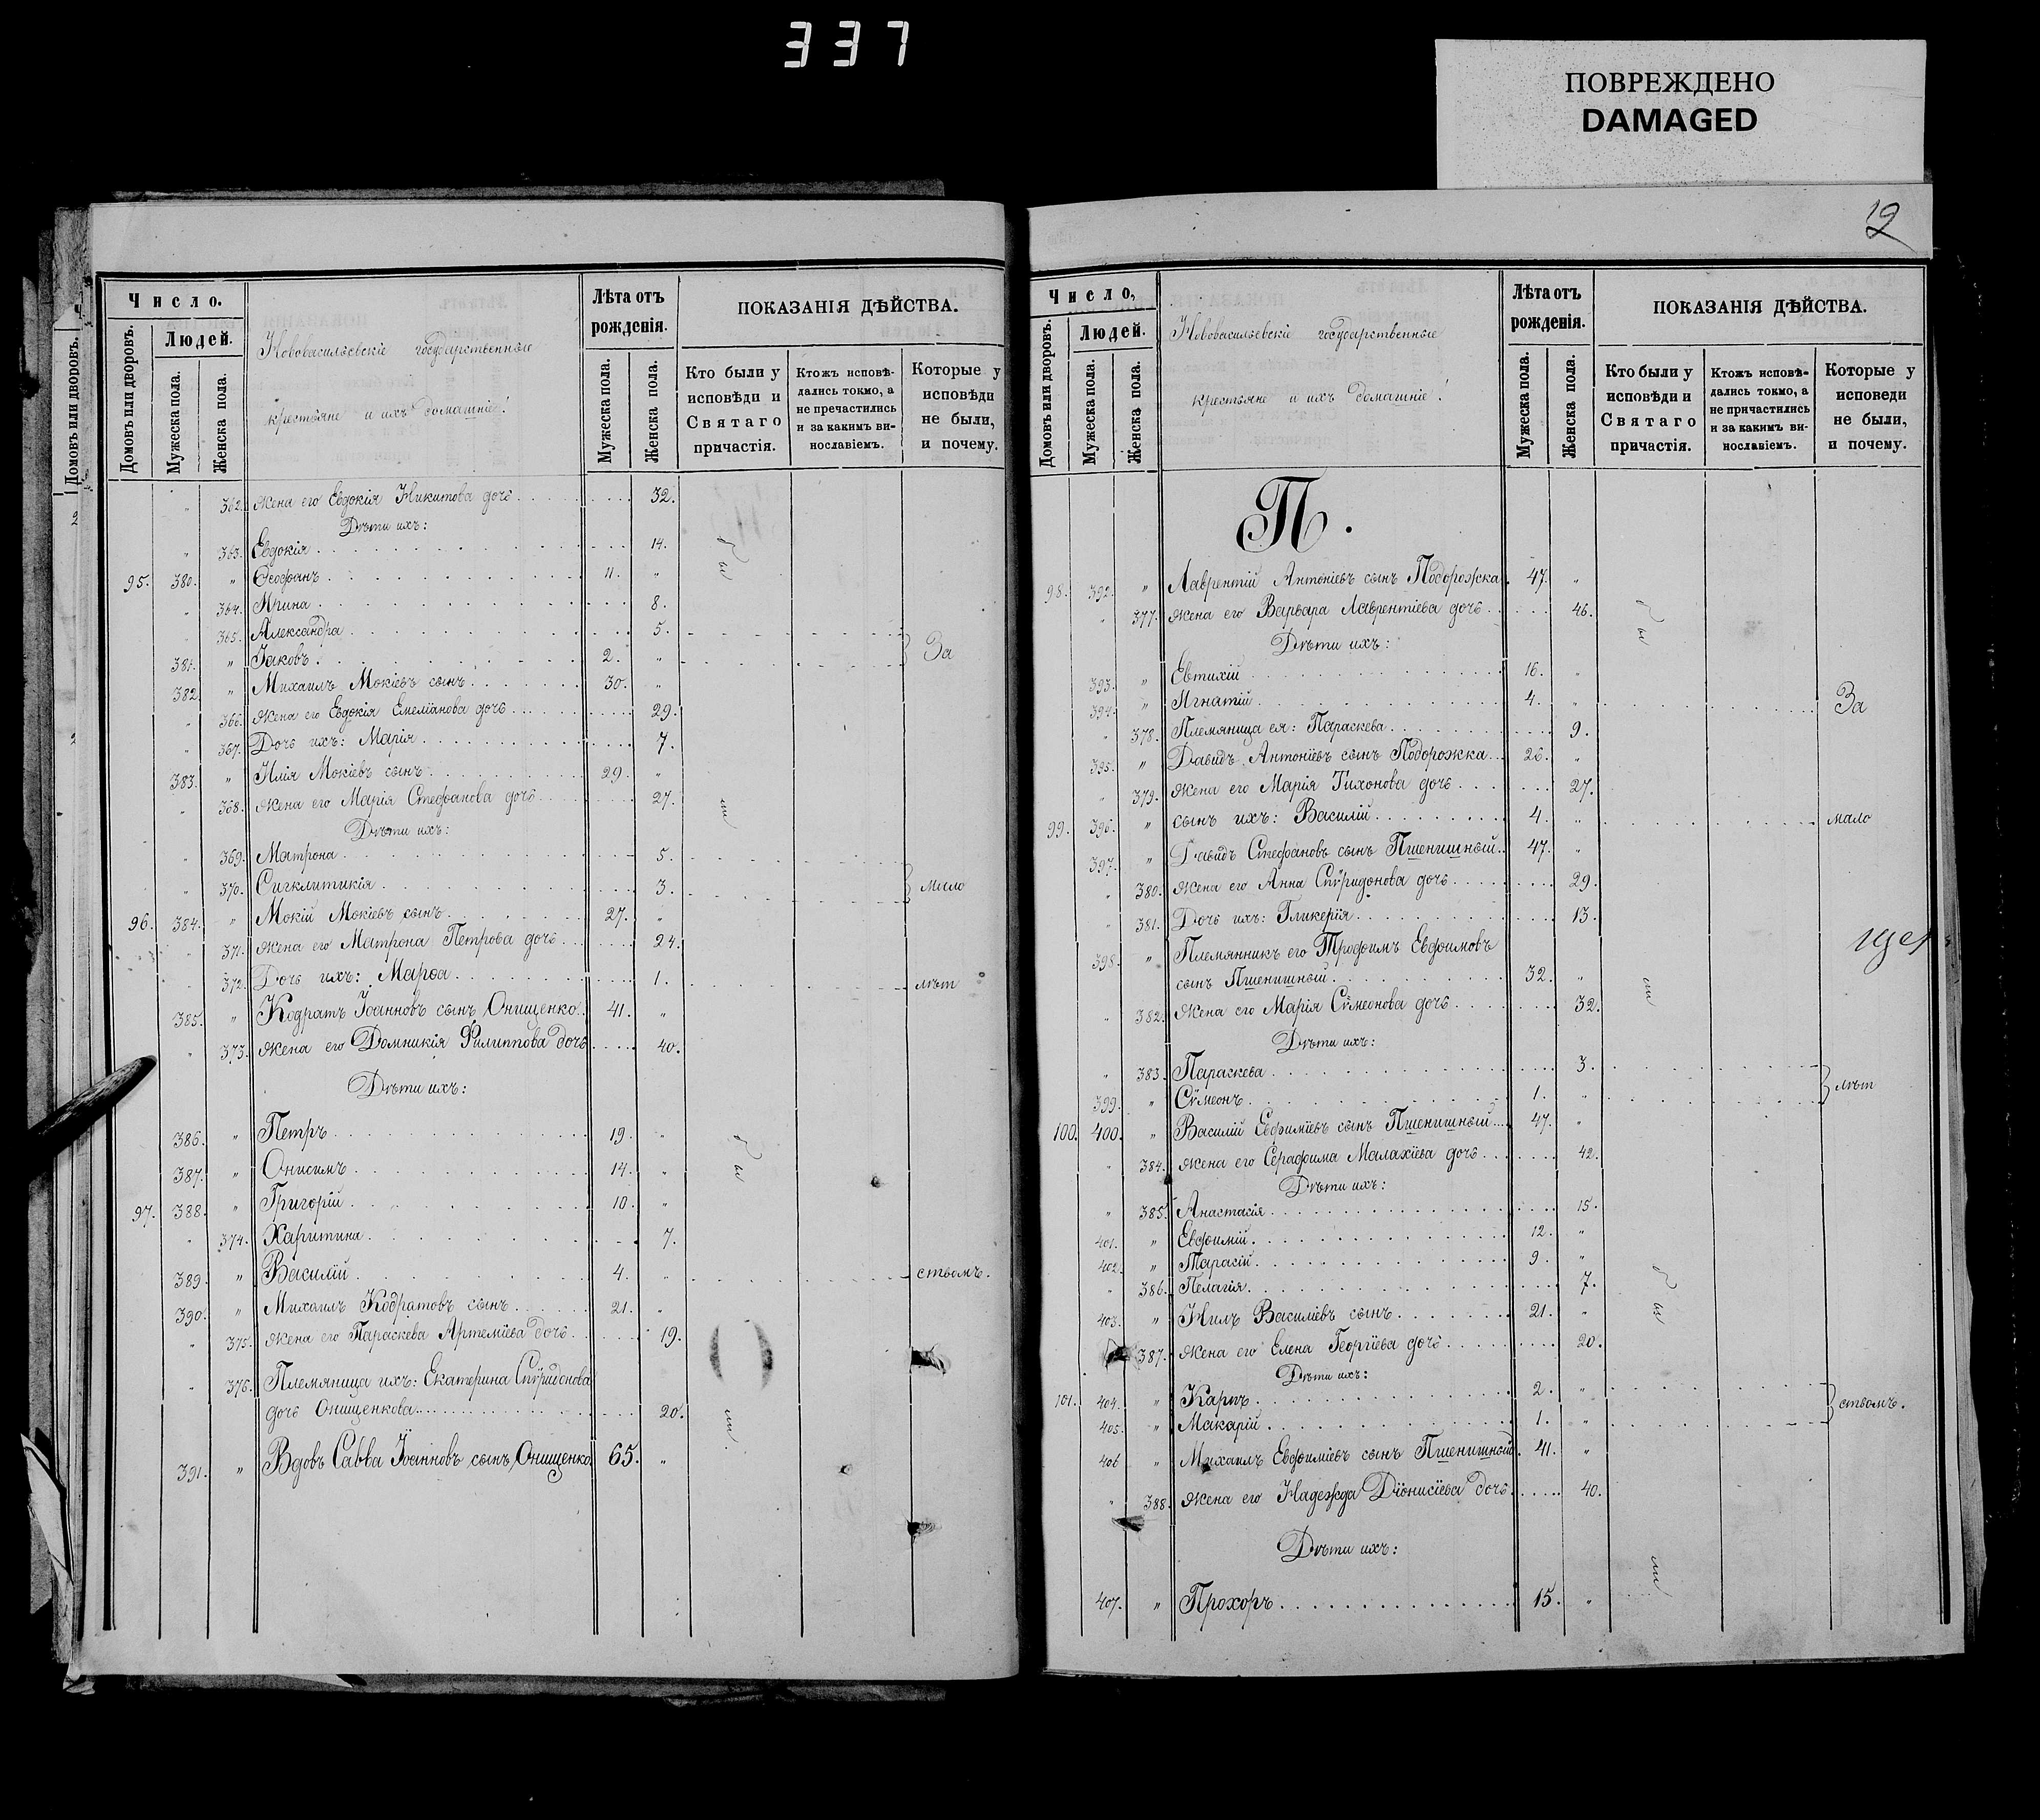 337
ПОВРЕЖДЕНО
DAMAGED
Число.
Людей.
Домовъ или дворовъ.
Мужеска пола.
Женска пола.
Нововасильевскіе государственные
крестьяне и ихъ домашніе:
Лѣта отъ
рожденія.
Мужеска пола.
Женска пола.
ПОКАЗАНІЯ ДѢЙСТВА.
Кто были у
исповѣди и
Святаго
причастія.
Ктожъ исповѣ-
дались токмо, а
не пречастились
и за какимъ ви-
нославіемъ.
Которые у
исповѣди
не были,
и почему.
" 362. Жена его Евдокія Никитова дочь 32.
Дѣти ихъ:
" 363. Евдокія 14.
95. 380. " Ѳеофанъ 11. "
" 364. Ирина 8.
" 365. Александра 5.
381. " Іаковъ 2. " За
382. " Михаилъ Мокіевъ сынъ 30. "
" 366. Жена его Евдокія Емеліанова дочь 29.
" 367. Дочь ихъ: Марія 7.
383. " Илія Мокіевъ сынъ 29. "
" 368. Жена его Марія Стефанова дочь 27.
Дѣти ихъ:
" 369. Матрона 5.
" 370. Сигклитикія 3. мало
96. 384. " Мокій Мокіевъ сынъ 27. "
" 371. Жена его Матрона Петрова дочь 24.
" 372. Дочь ихъ: Марѳа 1. лѣт
385. " Кодратъ Іоанновъ сынъ Онищенко 41. "
" 373. Жена его Домникія Филиппова дочь 40.
Дѣти ихъ:
386. " Петръ 19. "
387. " Онисимъ 14. "
97. 388. " Григорій 10. "
" 374. Харитина 7.
389. " Василій 4. " ствомъ.
390. " Михаилъ Кодратовъ сынъ 21. "
" 375. Жена его Параскева Артеміева дочь 19.
" 376. Племяница ихъ: Екатерина Спѵридонова
дочь Онищенкова 20.
391. " Вдовъ Савва Іоанновъ сынъ Онищенко 65. "
12
Число,
Людей.
Домовъ или дворовъ.
Мужеска пола.
Женска пола.
Нововасильевскіе государственные
крестьяне и ихъ домашніе:
Лѣта отъ
рожденія.
Мужеска пола.
Женска пола.
ПОКАЗАНІЯ ДѢЙСТВА.
Кто были у
исповѣди и
Святаго
причастія.
Ктожъ исповѣ-
дались токмо, а
не причастились
и за какимъ ви-
нославіемъ.
Которые у
исповеди
не были,
и почему.
П.
98. 392. " Лаврентій Антоніевъ сынъ Подорожка 47. "
" 377. Жена его Варвара Лаврентіева дочь 46.
Дѣти ихъ:
393. " Евтихій 16. "
394. " Игнатій 4. " За
" 378. Племяница ея: Параскева 9.
395. " Давидъ Антоніевъ сынъ Подорожка 26. "
" 379. Жена его Марія Тихонова дочь 27.
99. 396. " сынъ ихъ: Василій 4. " мало
397. " Давидъ Стефановъ сынъ Пшенишный 47. "
" 380. Жена его Анна Спѵридонова дочь 29.
381. Дочь ихъ: Гликерія 13.
398. " Племянникъ его Трофимъ Евфимовъ
сынъ Пшенишный 32. "
" 382. Жена его Марія Сѵмеонова дочь 32.
Дѣти ихъ:
" 383. Параскева 3.
399. " Сѵмеонъ 1. " лѣт
100. 400. " Василій Евфиміевъ сынъ Пшенишный 47. "
" 384. Жена его Серафима Малахіева дочь 42.
Дѣти ихъ:
" 385. Анастасія 15.
401. " Евфимій 12. "
402. " Тарасій 9. "
" 386. Пелагія 7.
403. " Нилъ Василіевъ сынъ 21. "
387. Жена его Елена Георгіева дочь 20.
Дѣти ихъ:
101. 404. " Карпъ 2. "
405. " Макарій 1. " ствомъ.
406 " Михаилъ Евфиміевъ сынъ Пшенишный 41. "
" 388. Жена его Надежда Діонисіева дочь 40.
Дѣти ихъ:
407. " Прохоръ 15. "